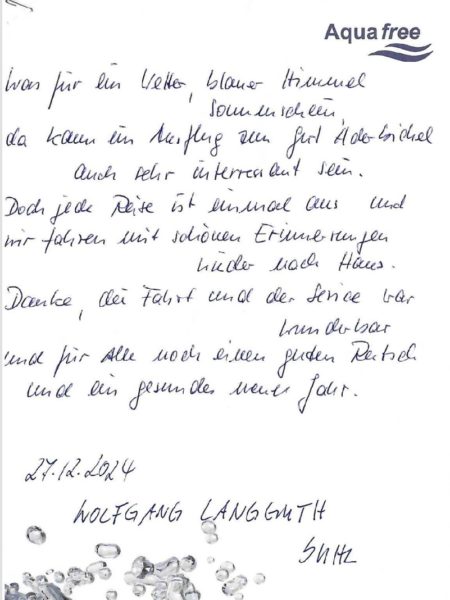 Aqua free
Was für ein Wetter, blauer Himmel
Sonnenschein,
da kann ein Ausflug zum Gut Aiderbichel
auch sehr interressant sein.
Doch jede Reise ist einmal aus und
wir fahren mit schönen Erinnerungen
wieder nach Haus.
Danke, die Fahrt und der Service war
wunderbar
und für Alle noch einen guten Rutsch
und ein gesundes neues Jahr.
27.12.2024
WOLFGANG LANGGUTH
SUHL